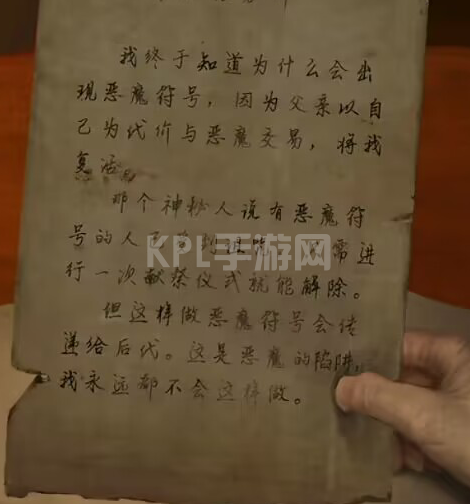 我终于知道为什么会出
现恶魔符号，因为父亲以自
己为代价与恶魔交易，将我
复活。
那个神秘人说有恶魔符
号的人已受到诅咒，需进
行一次献祭仪式就能解除。
但这样做恶魔符号会传
递给后代。这是恶魔的陷阱，
我永远都不会这样做。
KPL手游网